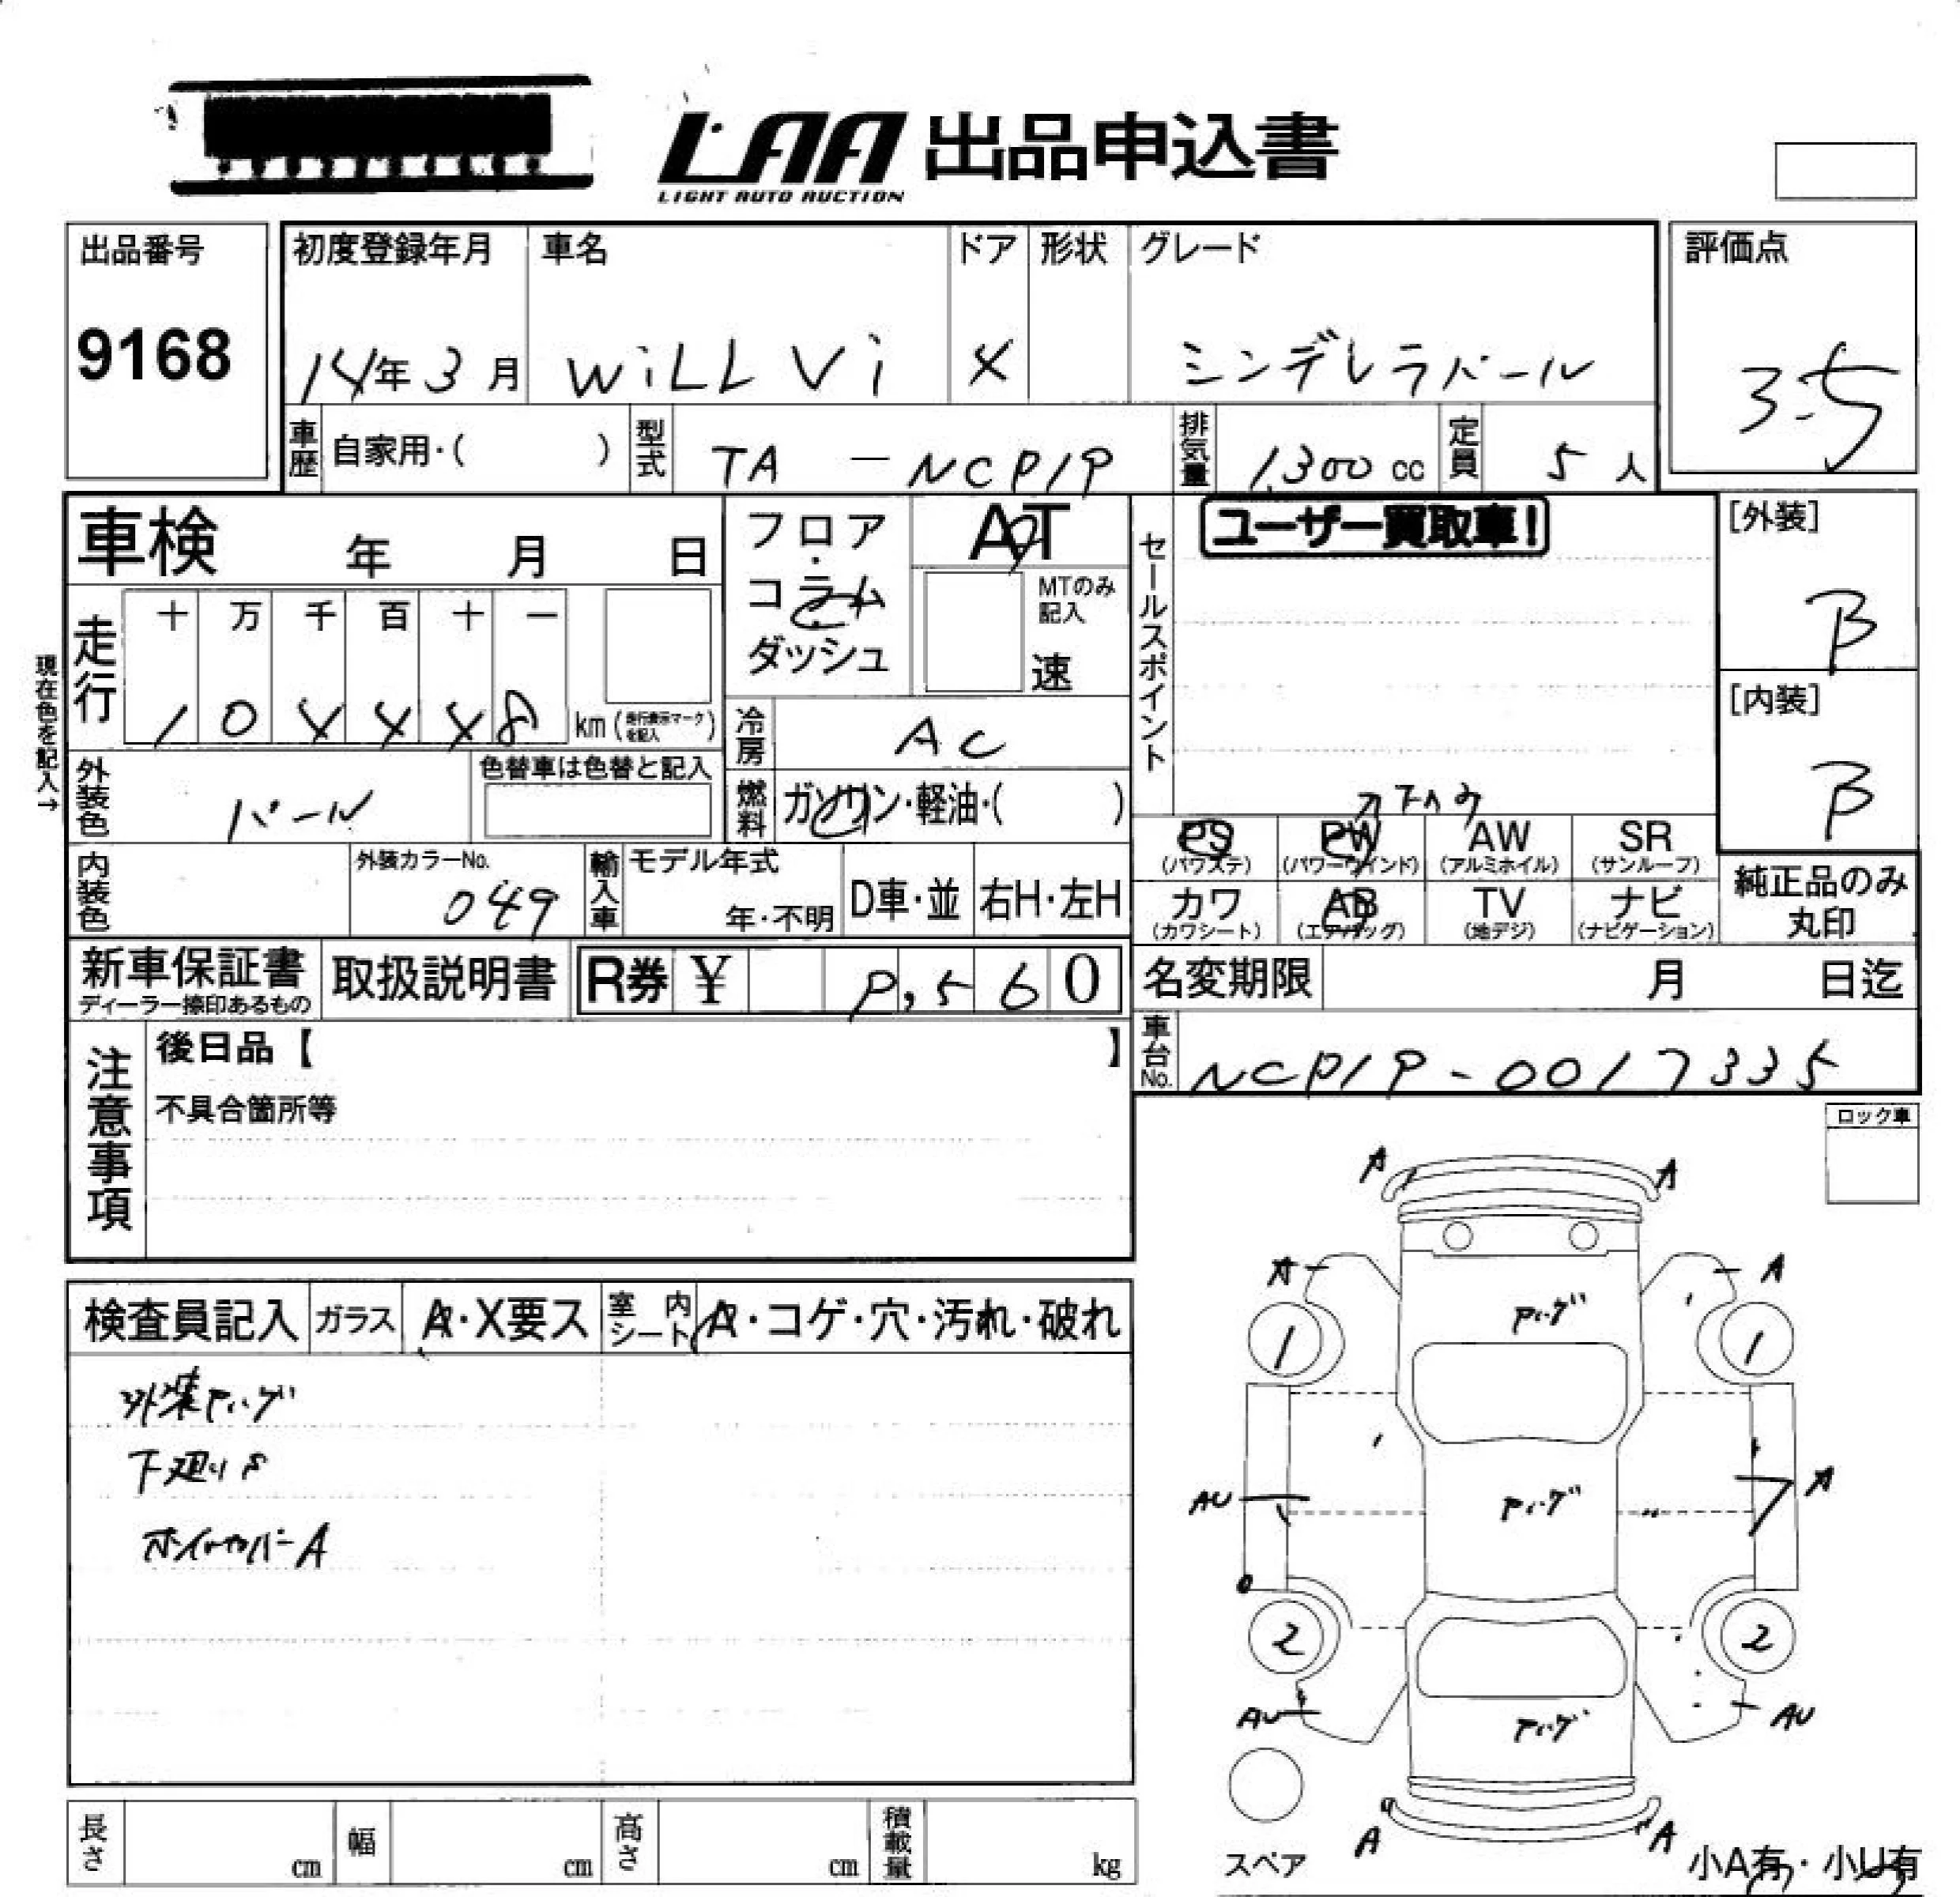 LAA 出品申込書
LIGHT AUTO AUCTION
出品番号 初度登録年月 車名 ドア 形状 グレード 評価点
9168 14年3月 WiLL Vi X シンデレラパール 3.5
車歴 自家用・( ) 型式 TA - NCP19 排気量 1,300cc 定員 5人
車検 年 月 日
フロア・コラム ダッシュ
AT
MTのみ記入
速
セールスポイント
ユーザー買取車!
[外装]
B
[内装]
B
現在色を記入→
走行 十 万 千 百 十 一
1 0 X X X 8 km (走行表示マークを記入)
冷房 AC
外装色 パール 色替車は色替と記入
燃料 ガソリン・軽油・( )
PS (パワステ) PW (パワーウインド) AW (アルミホイル) SR (サンルーフ)
カワ (カワシート) AB (エアバッグ) TV (地デジ) ナビ (ナビゲーション)
純正品のみ丸印
内装色 外装カラーNo. 049 輸入車 モデル年式 年・不明 D車・並 右H・左H
新車保証書 ディーラー捺印あるもの 取扱説明書 R券 ¥ 9,560
名変期限 月 日迄
車台No. NCP19-0017335
注意事項
後日品【 】
不具合箇所等
ロック車
検査員記入 ガラス A・X要ス 室内シート A・コゲ・穴・汚れ・破れ
外装
下廻りS
ホイルカバーA
A A
A A
1 1
AU A
2 2
AU AU
A A
スペア
小A有・小U有
長さ cm 幅 cm 高さ cm 積載量 kg